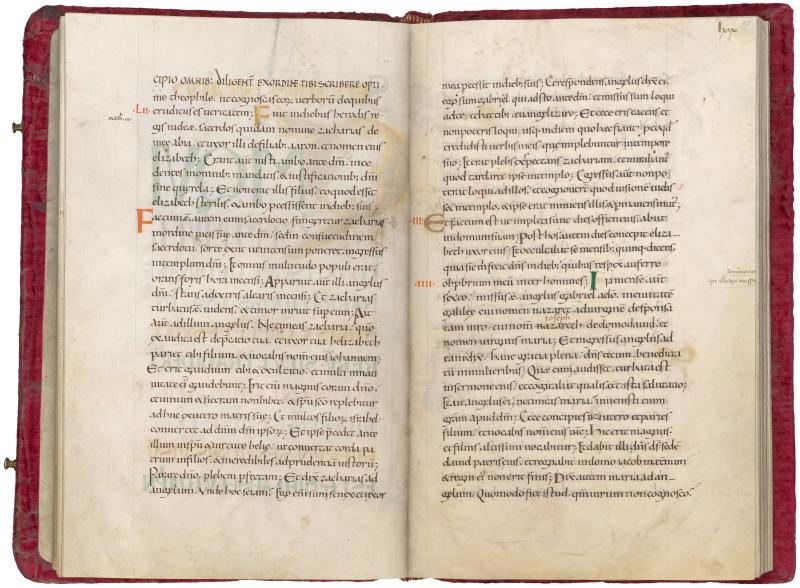 cipio omnib; diligent exordine tibi scribere opti
me theophile ut cognoscas eoꝝ verboru dequibus
·I·II· eruditus es ueritatem; Fuit indiebus herodis re
gis iudeę. sacerdos quidam nomine zacharias de
uice abia. et uxor illi defiliab; aaron. et nomen eius
elizabeth; Erant aut iusti ambo ante dm. ince
dentes inomnib; mandatis. & iustificationib; dni
sine querela; Et non erat illis filius. eo quod esset
elizabeth sterilis. & ambo pcessissent indieb; suis;
Factum ē. autem cum sacerdotio fungeretur zacharias
inordine uicis suę ante dm. scdm consuetudinem
sacerdotii. sorte exiit ut incensum poneret. ingressus
intemplum dni; Et omnis multitudo populi erat
orans foris hora incensi; Apparuit aut illi angelus
dni. stans adextris altaris incensi; Et zacharias
turbatus ē. uidens. & timor irruit sup eum; Ait
aut adillum angelus; Ne timeas zacharia. quo
exaudita est deprecatio tua. et uxor tua helizabeth
pariet tibi filium. & uocabis nom eius iohannem;
Et erit gaudium tibi & exultatio. et multi innati
uitate ei gaudebunt; Erit eni magnus coram dno.
et uinum & siceram non bibet. & spu sco replebitur
adhuc ex utero matris suę; Et multos filioꝝ israhel
conuertet ad dnm dm ipsoꝝ; Et ipse pcedet ante
illum inspu & uirtute helię. ut conuertat corda pa
trum infilios. & incredibiles ad prudentia iustoru;
Parare dno. plebem pfectam; Et dixit zacharias ad
angelum. Vnde hoc sciam; Ego eni sum senex. et uxor
lxxx
mea pcessit indieb; suis; Et respondens angelus dixit ei.
ego sum gabriel qui adsto ante dm. et missus sum loqui
adte. et hęc tibi euangelizare; Et ecce eris tacens. et
non poteris loqui. usq; indiem quo hęc fiant. p eo qd
credidisti uerbis meis. quę implebuntur intempore
suo; Et erat plebs expectans zachariam. et mirabant
quod tardaret ipse intemplo; Egressus aut non po
terat loqui adillos. et cognouert quod uisione uidis
set intemplo. & ipse erat innuens illis. & pmansit mut;
·III· Et factum est ut impleti sunt dies officii eius. abiit
indomum suam; Post hos autem dies concepit eliza
beth uxor eius. et occultabat se mensib; quinq; dicens.
quia sic m fecit dns indieb; quibus respexit auferre
·IIII· obpbrium meu inter homines; In mense aut
sexto. missus ē. angelus gabriel ado. inciuitate
galileę cui nomen nazareth. aduirgine desponsa
ioseph
tam uiro. cui nom nazareth. dedomo dauid. et
nomen uirginis maria; Et ingressus angelus ad
eam dixit. haue gratia plena. dns tecum. benedicta
tu inmulieribus; Quę cum audisset. turbata est
insermone eius. et cogitabat qualis eet ista salutatio;
Et ait angelus ei; ne timeas maria. inuenisti enim
gram apud dm; Ecce concipies inutero et paries
filium. et uocabis nom eius ihm; Hic erit magnus.
et filius altissimi uocabitur; Et dabit illi dns ds sede
dauid patris eius. et regnabit indomo iacob inęternum
& regni ei non erit finis; Dixit autem maria ad an
gelum. Quomodo fiet istud. qm uirum non cognosco;